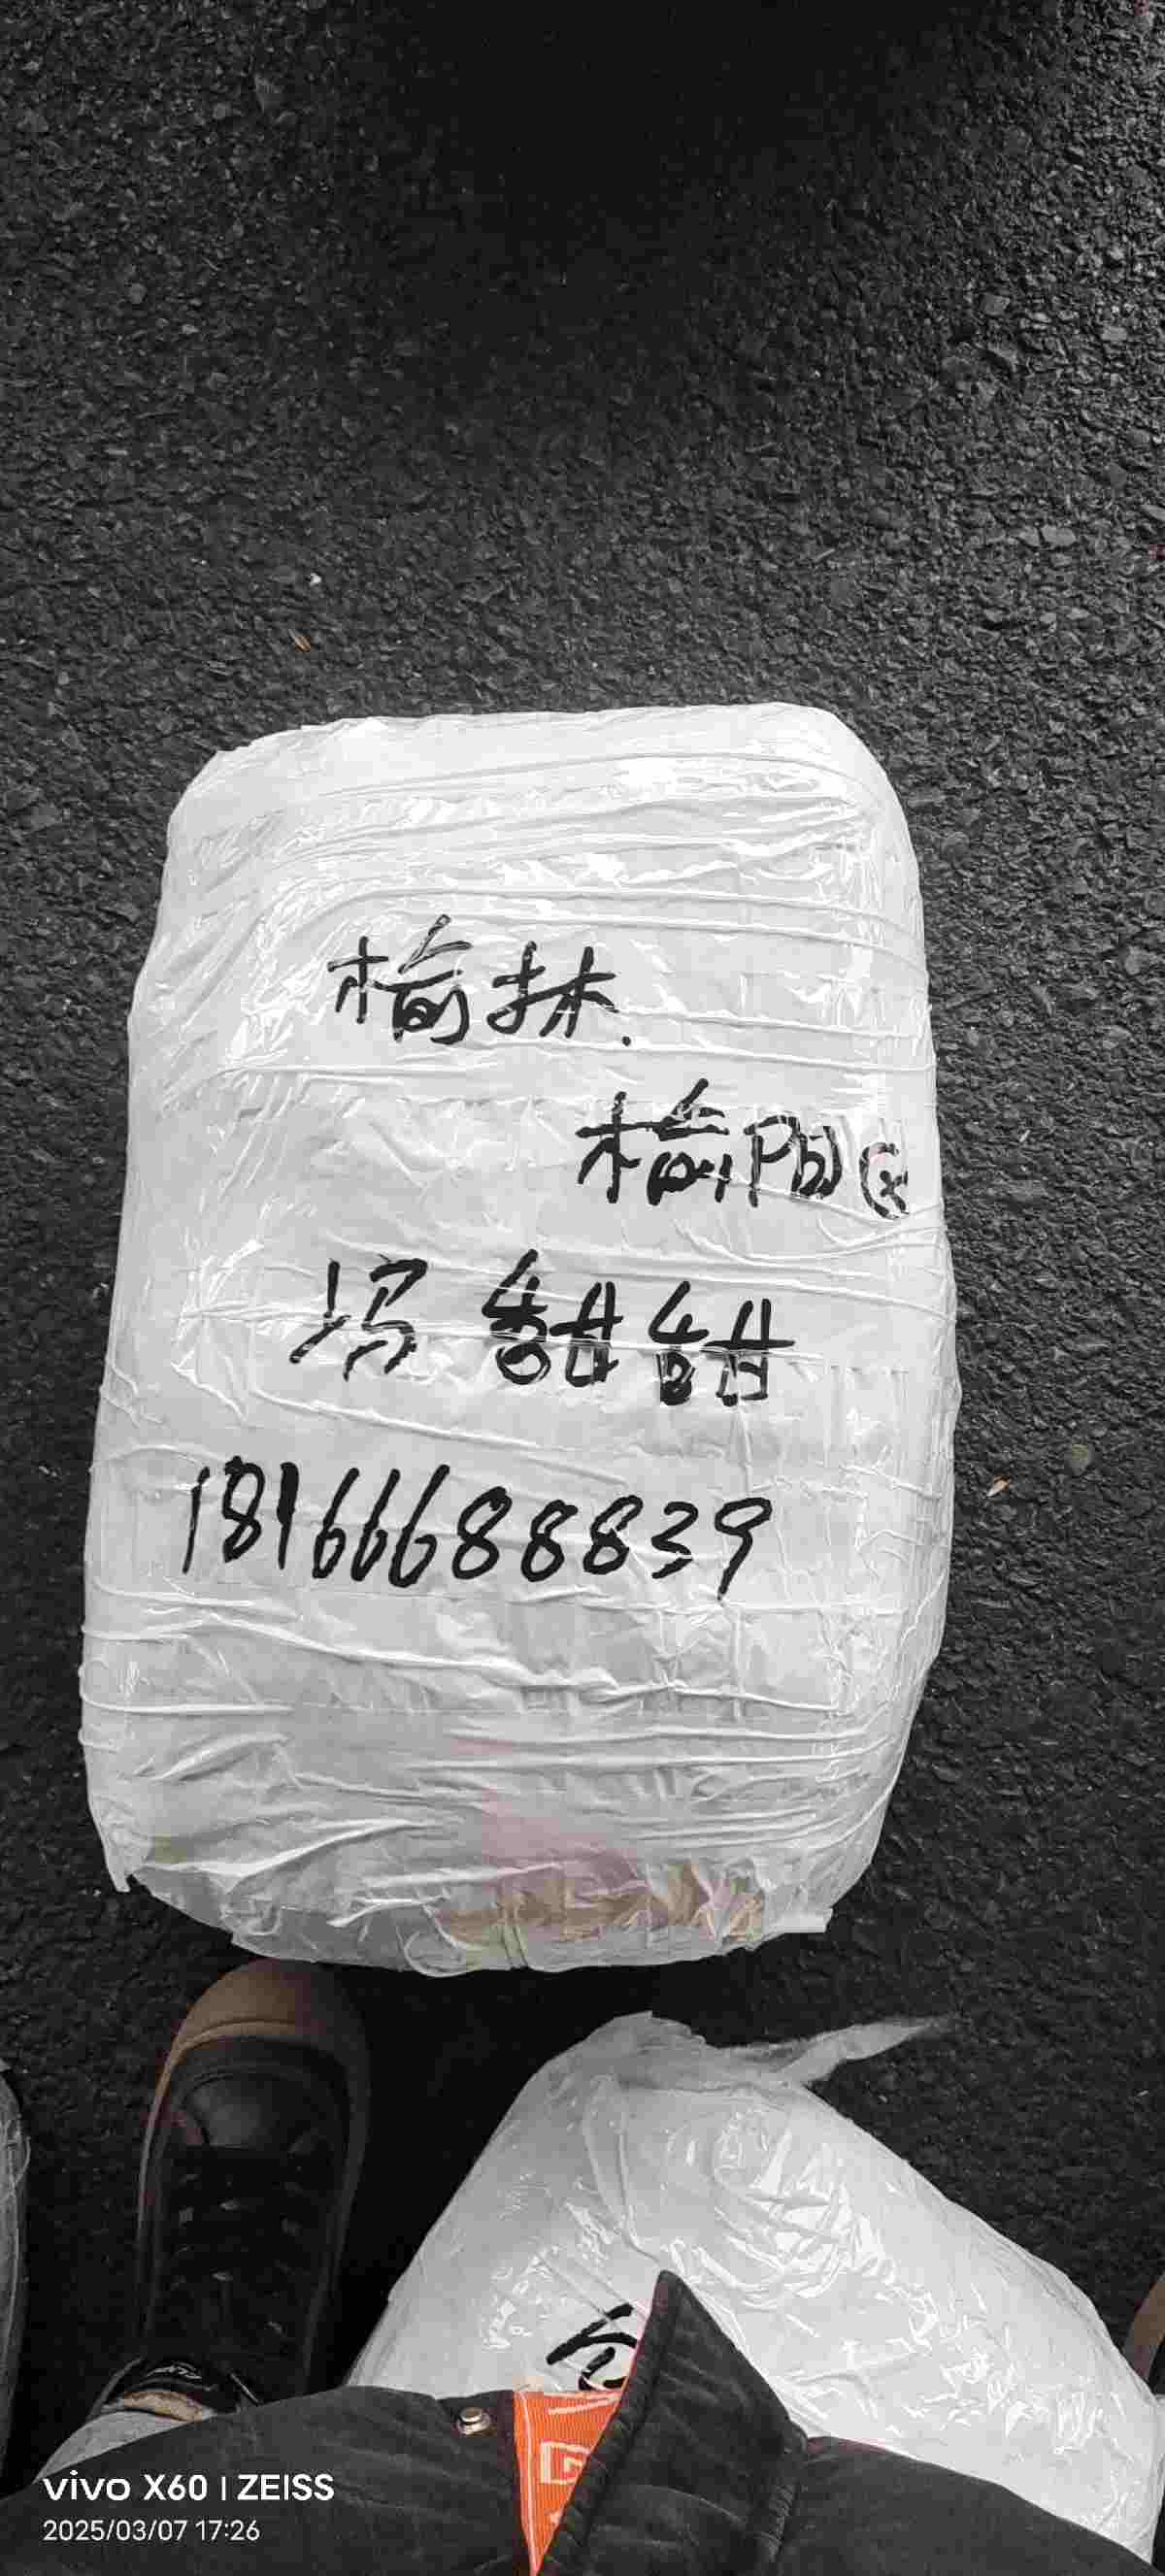 榆林.
榆阳区
冯甜甜
18166688839
vivo X60 | ZEISS
2025/03/07 17:26